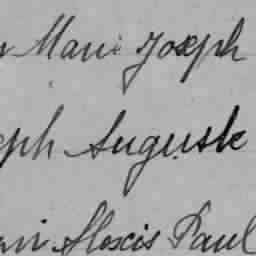 Marie Joseph
eph Auguste
Alexis Paul